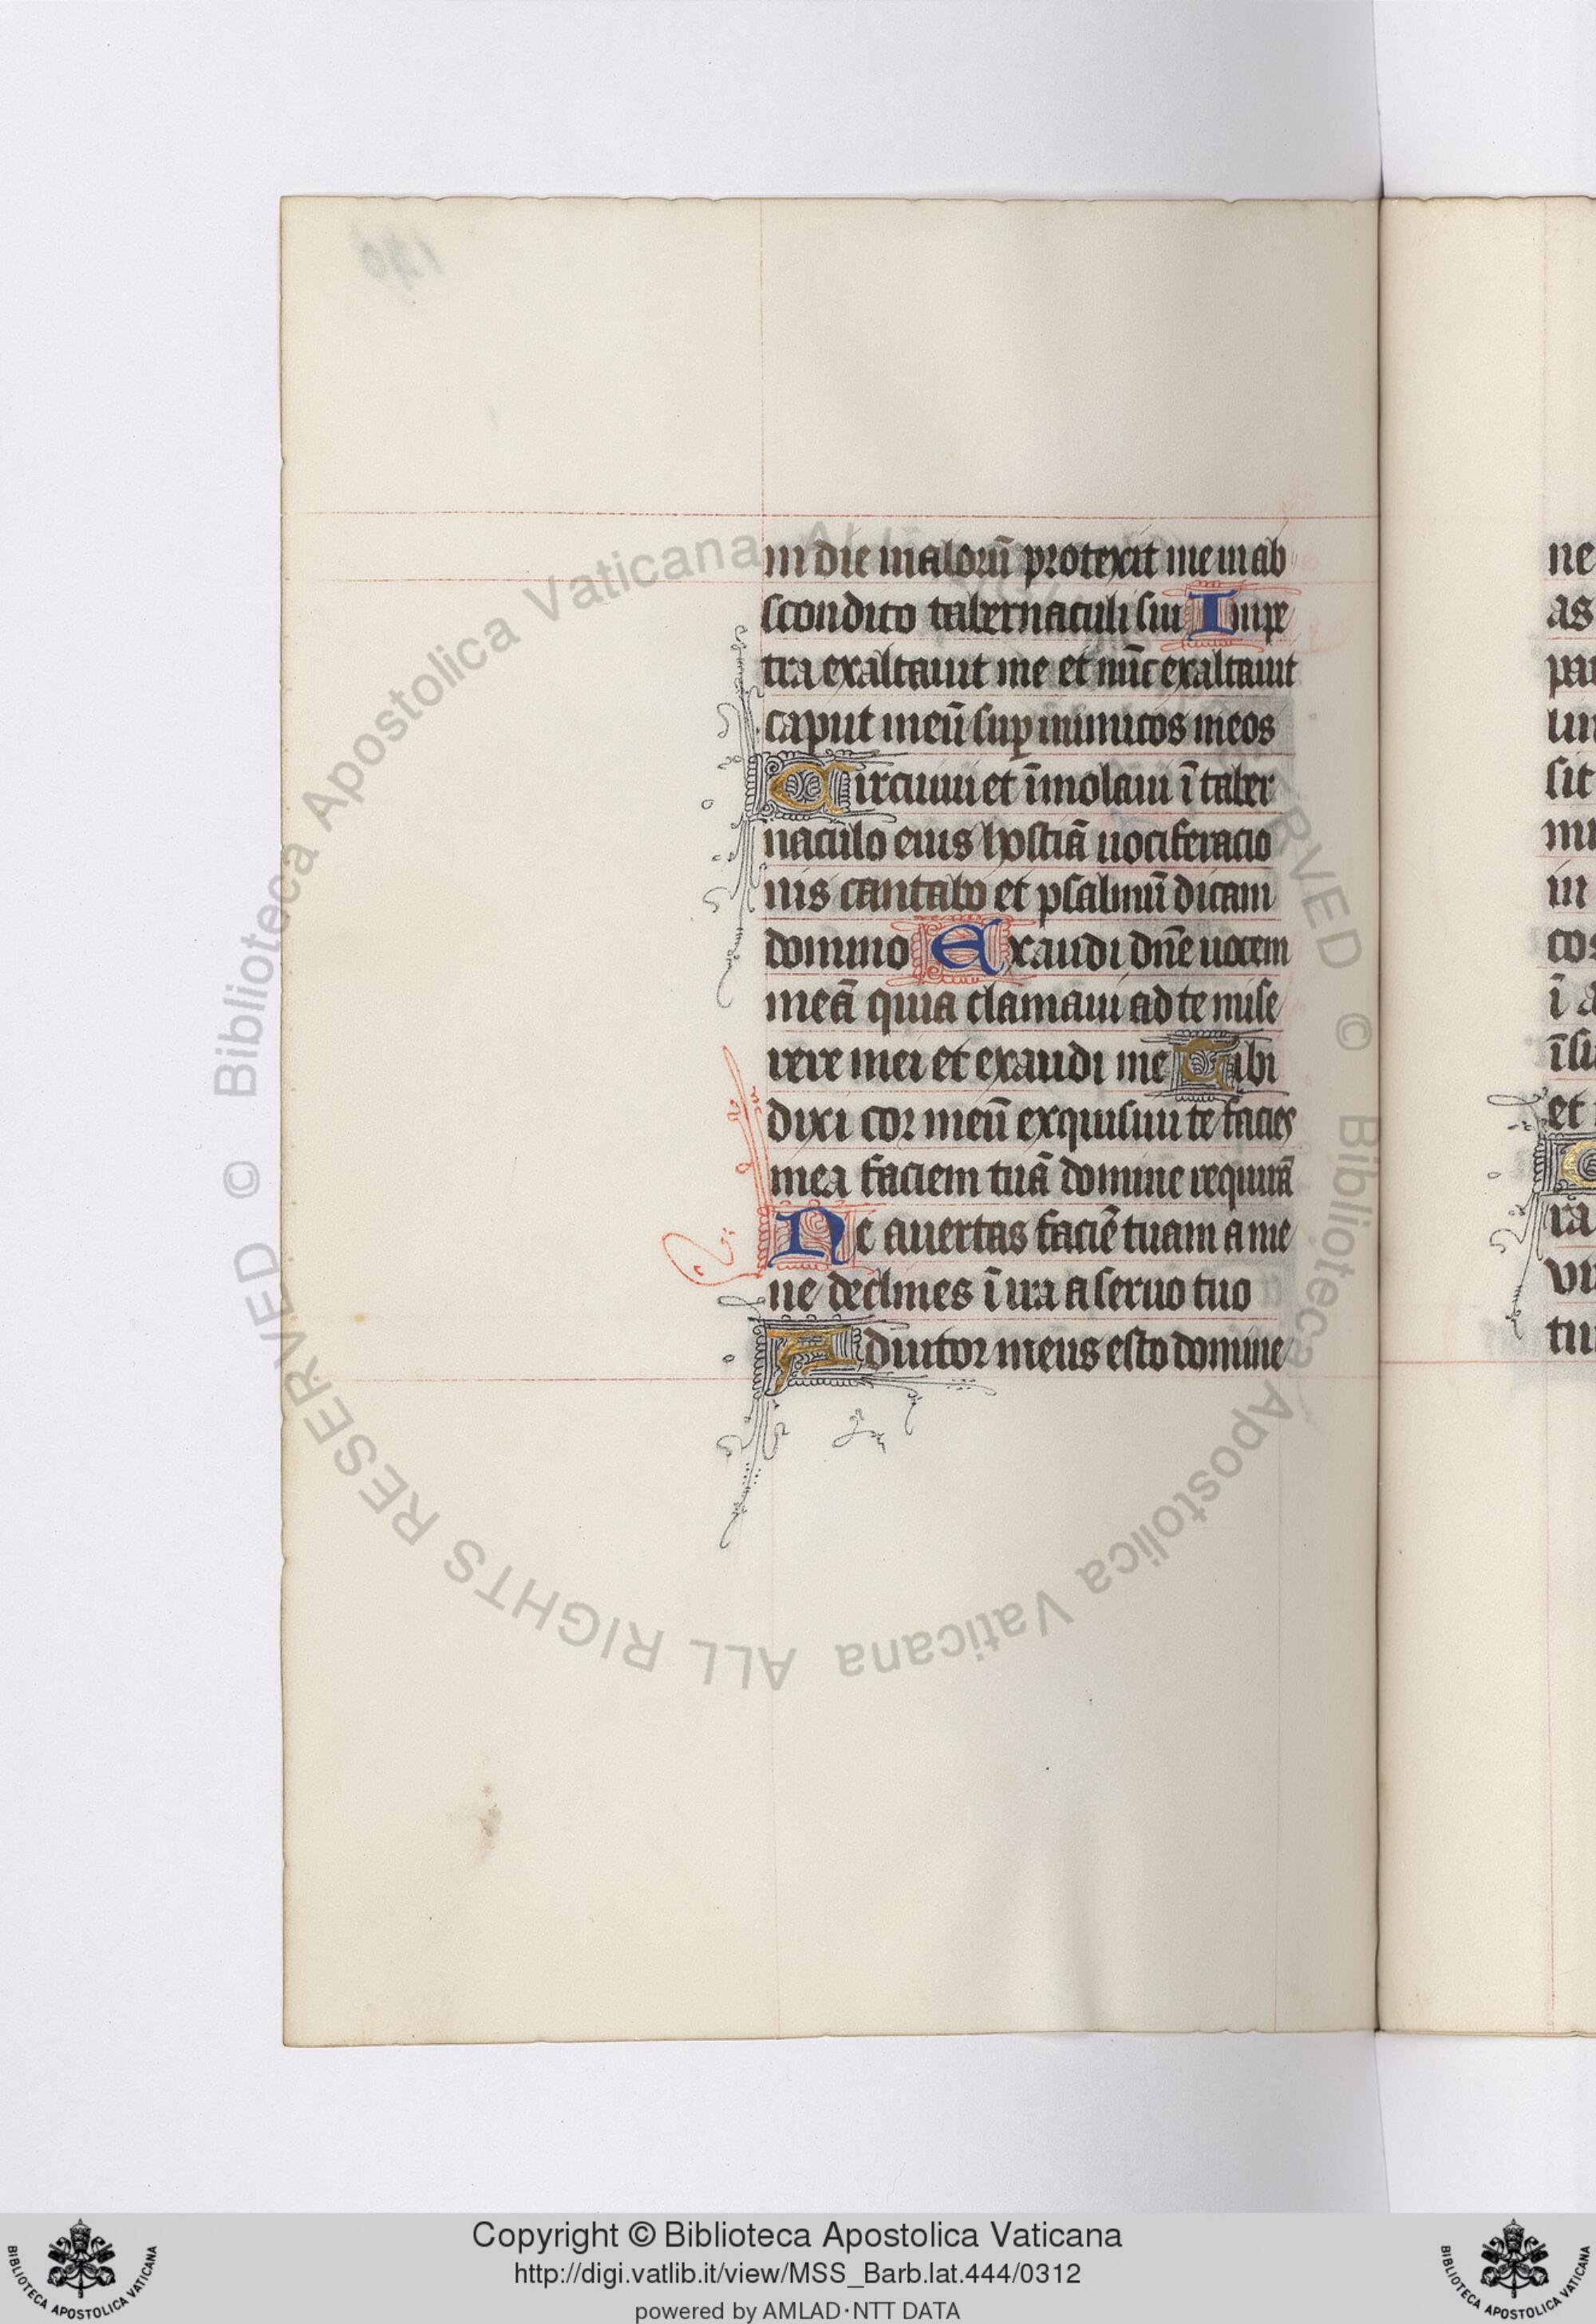 in die malorū protexit me in ab
scondito tabernaculi sui In pe
tra exaltauit me et nūc exaltauit
caput meū sup inimicos meos
Circuiui et īmolaui ī taber
naculo eius hostiā uociferacio
nis cantabo et psalmū dicam
domino Exaudi dn̄e uocem
meā quia clamaui ad te mise
rere mei et exaudi me Tibi
dixi cor meū exquisiuit te facies
mea faciem tuā domine requirā
Ne auertas faciē tuam a me
ne declines ī ira a seruo tuo
Adiutor meus esto domine
ne
as
sit
in
cos
et
tu
© Biblioteca Apostolica Vaticana ALL RIGHTS RESERVED © Biblioteca Apostolica Vaticana ALL RIGHTS RESERVED
Copyright © Biblioteca Apostolica Vaticana
http://digi.vatlib.it/view/MSS_Barb.lat.444/0312
powered by AMLAD·NTT DATA
BIBLIOTECA APOSTOLICA VATICANA
BIBLIOTECA APOSTOLICA VATICANA